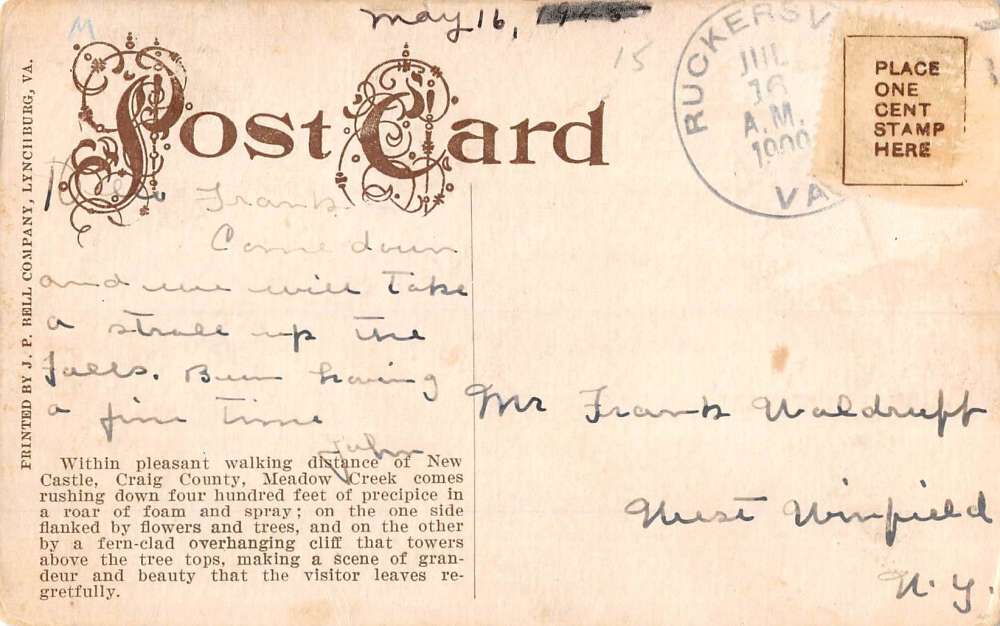 May 16,
M
15
Post Card
RUCKERSV
JUL
16
A.M.
1909
VA
PLACE
ONE
CENT
STAMP
HERE
PRINTED BY J. P. BELL COMPANY, LYNCHBURG, VA.
Hello Frank
Come down
and we will take
a stroll up the
Falls. Been having
a fine time
John
Within pleasant walking distance of New
Castle, Craig County, Meadow Creek comes
rushing down four hundred feet of precipice in
a roar of foam and spray; on the one side
flanked by flowers and trees, and on the other
by a fern-clad overhanging cliff that towers
above the tree tops, making a scene of gran-
deur and beauty that the visitor leaves re-
gretfully.
Mr Frank Waldruff
West Winfield
N. Y.